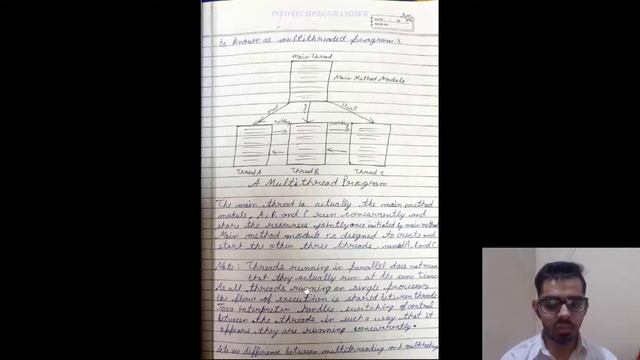 INFOTECHPROGRAMMER
is known as multithreaded program:
Main Thread
Main Method Module
start
start
switching
switching
Thread A
Thread B
Thread C
A Multithread Program
The main thread is actually the main method
module, A, B and C run concurrently and
share the resources jointly once initiated by main method
Main method module is designed to create and
start the other three threads, namely A, B and C
Note: Threads running in parallel does not mean
that they actually run at the same time
As all threads running on single processor
the flow of execution is shared between threads
Java interpreter handles switching of control
between the threads in such a way that it
appears they are running concurrently.
difference between multithreading and multitasking